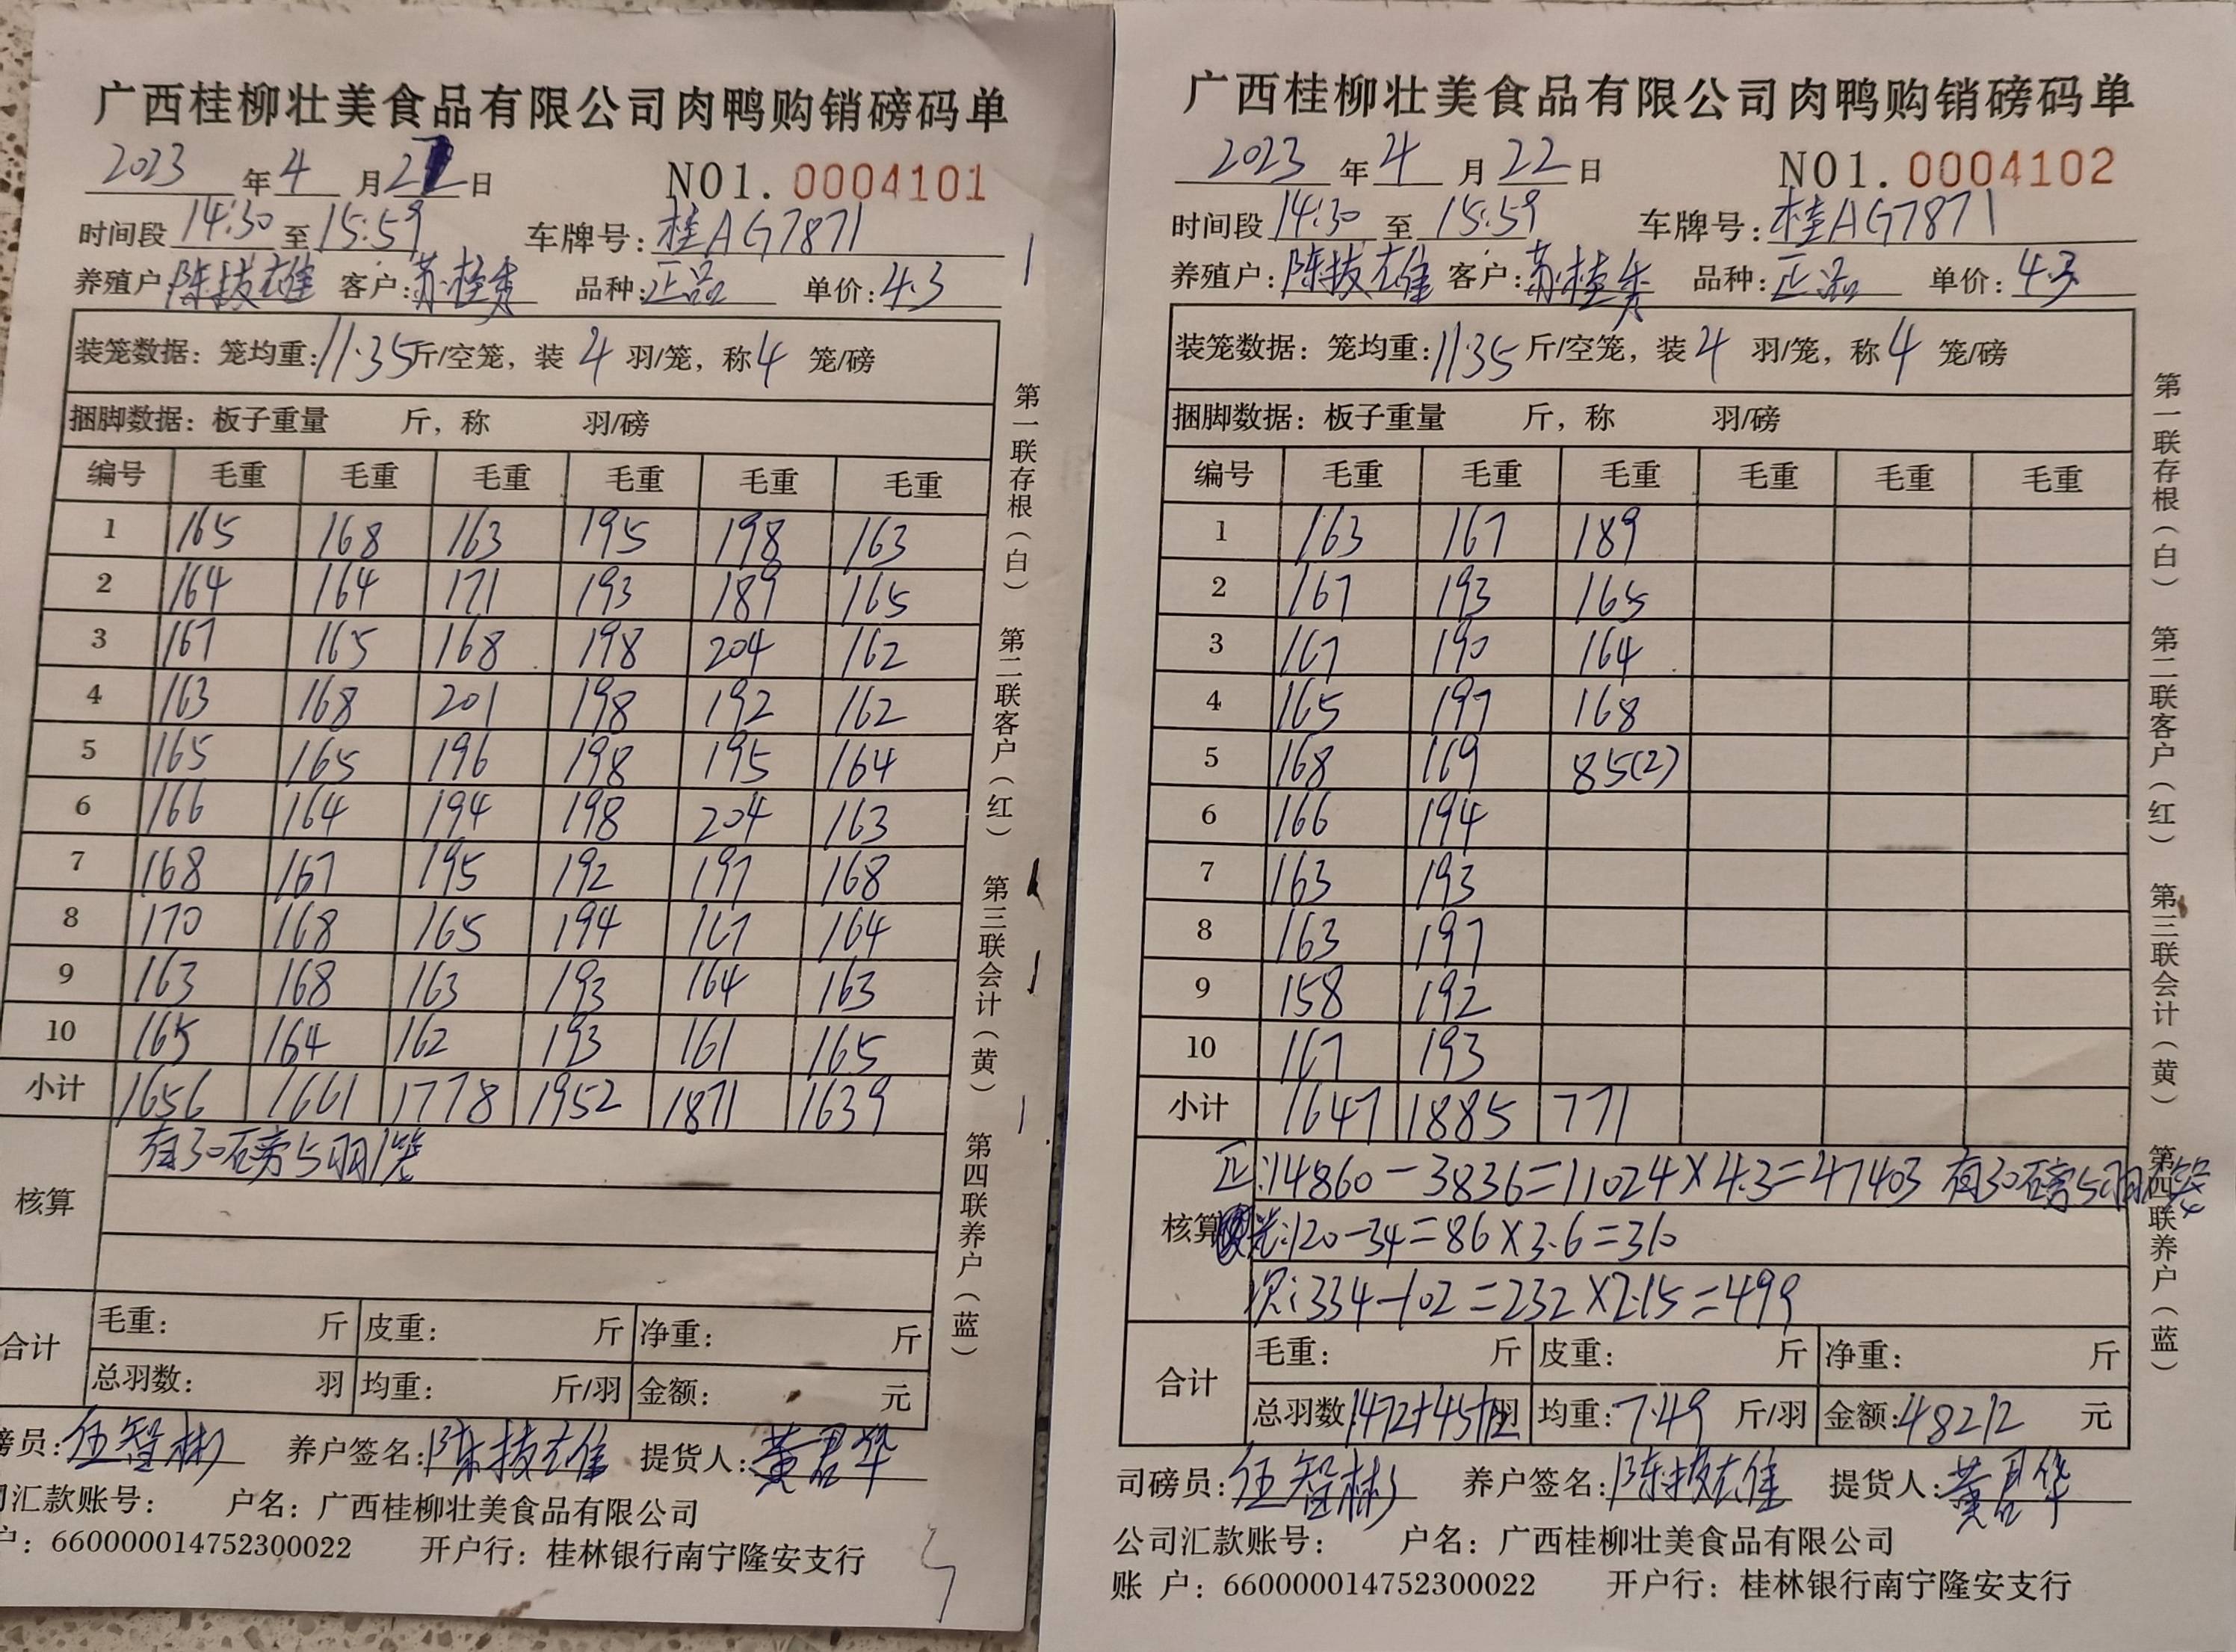 广西桂柳壮美食品有限公司肉鸭购销磅码单
2023 年 4 月 22 日 NO1. 0004101
时间段 14:30 至 15:59 车牌号: 桂AG7871
养殖户 陈技雄 客户: 苏桂秀 品种: 正品 单价: 4.3
装笼数据: 笼均重: 11.35 斤/空笼, 装 4 羽/笼, 称 4 笼/磅
捆脚数据: 板子重量 斤, 称 羽/磅
编号 毛重 毛重 毛重 毛重 毛重 毛重
1 165 168 163 195 198 163
2 164 164 171 193 189 165
3 167 165 168 198 204 162
4 163 168 201 198 192 162
5 165 165 196 198 195 164
6 166 164 194 198 204 163
7 168 167 195 192 197 168
8 170 168 165 194 167 164
9 163 168 163 193 164 163
10 165 164 162 193 161 165
小计 1656 1661 1778 1952 1871 1639
核算 有30磅5羽1笼
合计 毛重: 斤 皮重: 斤 净重: 斤
总羽数: 羽 均重: 斤/羽 金额: 元
磅员: 伍智彬 养户签名: 陈技雄 提货人: 黄君华
司汇款账号: 户名: 广西桂柳壮美食品有限公司
户: 660000014752300022 开户行: 桂林银行南宁隆安支行
第一联存根(白) 第二联客户(红) 第三联会计(黄) 第四联养户(蓝)
广西桂柳壮美食品有限公司肉鸭购销磅码单
2023 年 4 月 22 日 NO1. 0004102
时间段 14:30 至 15:59 车牌号: 桂AG7871
养殖户: 陈技雄 客户: 苏桂秀 品种: 正品 单价: 4.3
装笼数据: 笼均重: 11.35 斤/空笼, 装 4 羽/笼, 称 4 笼/磅
捆脚数据: 板子重量 斤, 称 羽/磅
编号 毛重 毛重 毛重 毛重 毛重 毛重
1 163 167 189
2 167 193 165
3 167 190 164
4 165 197 168
5 168 169 85(2)
6 166 194
7 163 193
8 163 197
9 158 192
10 167 193
小计 1647 1885 771
正:14860-3836=11024×4.3=47403 有30磅5羽1笼
核算 光:120-34=86×3.6=310
次:334-102=232×2.15=499
合计 毛重: 斤 皮重: 斤 净重: 斤
总羽数:1472+45+12羽 均重: 7.49 斤/羽 金额: 48212 元
司磅员: 伍智彬 养户签名: 陈技雄 提货人: 黄君华
公司汇款账号: 户名: 广西桂柳壮美食品有限公司
账 户: 660000014752300022 开户行: 桂林银行南宁隆安支行
第一联存根(白) 第二联客户(红) 第三联会计(黄) 第四联养户(蓝)